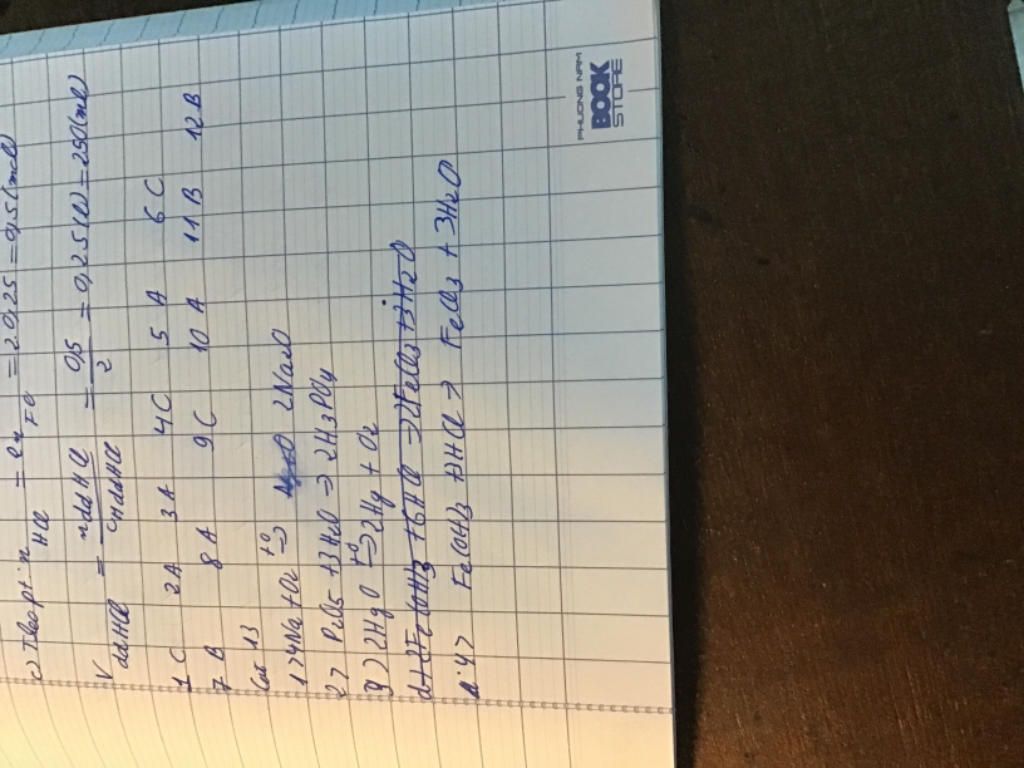 c) Theo pt: n HCl = 2n FeO = 2.0,25 = 0,5 (mol)
V ddHCl = n ddHCl / CM ddHCl = 0,5 / 2 = 0,25 (l) = 250 (ml)
1 C 2A 3 A 4C 5 A 6 C
7 B 8 A 9 C 10 A 11 B 12 B
Câu 13
1> 4Na + O2 t0 => 2Na2O
2> P2O5 + 3H2O => 2H3PO4
3) 2HgO t0 => 2Hg + O2
2Fe(OH)3 + 6HCl => 2FeCl3 + 3H2O
4> Fe(OH)3 + 3HCl => FeCl3 + 3H2O
PHUONG NAM
BOOK
STORE